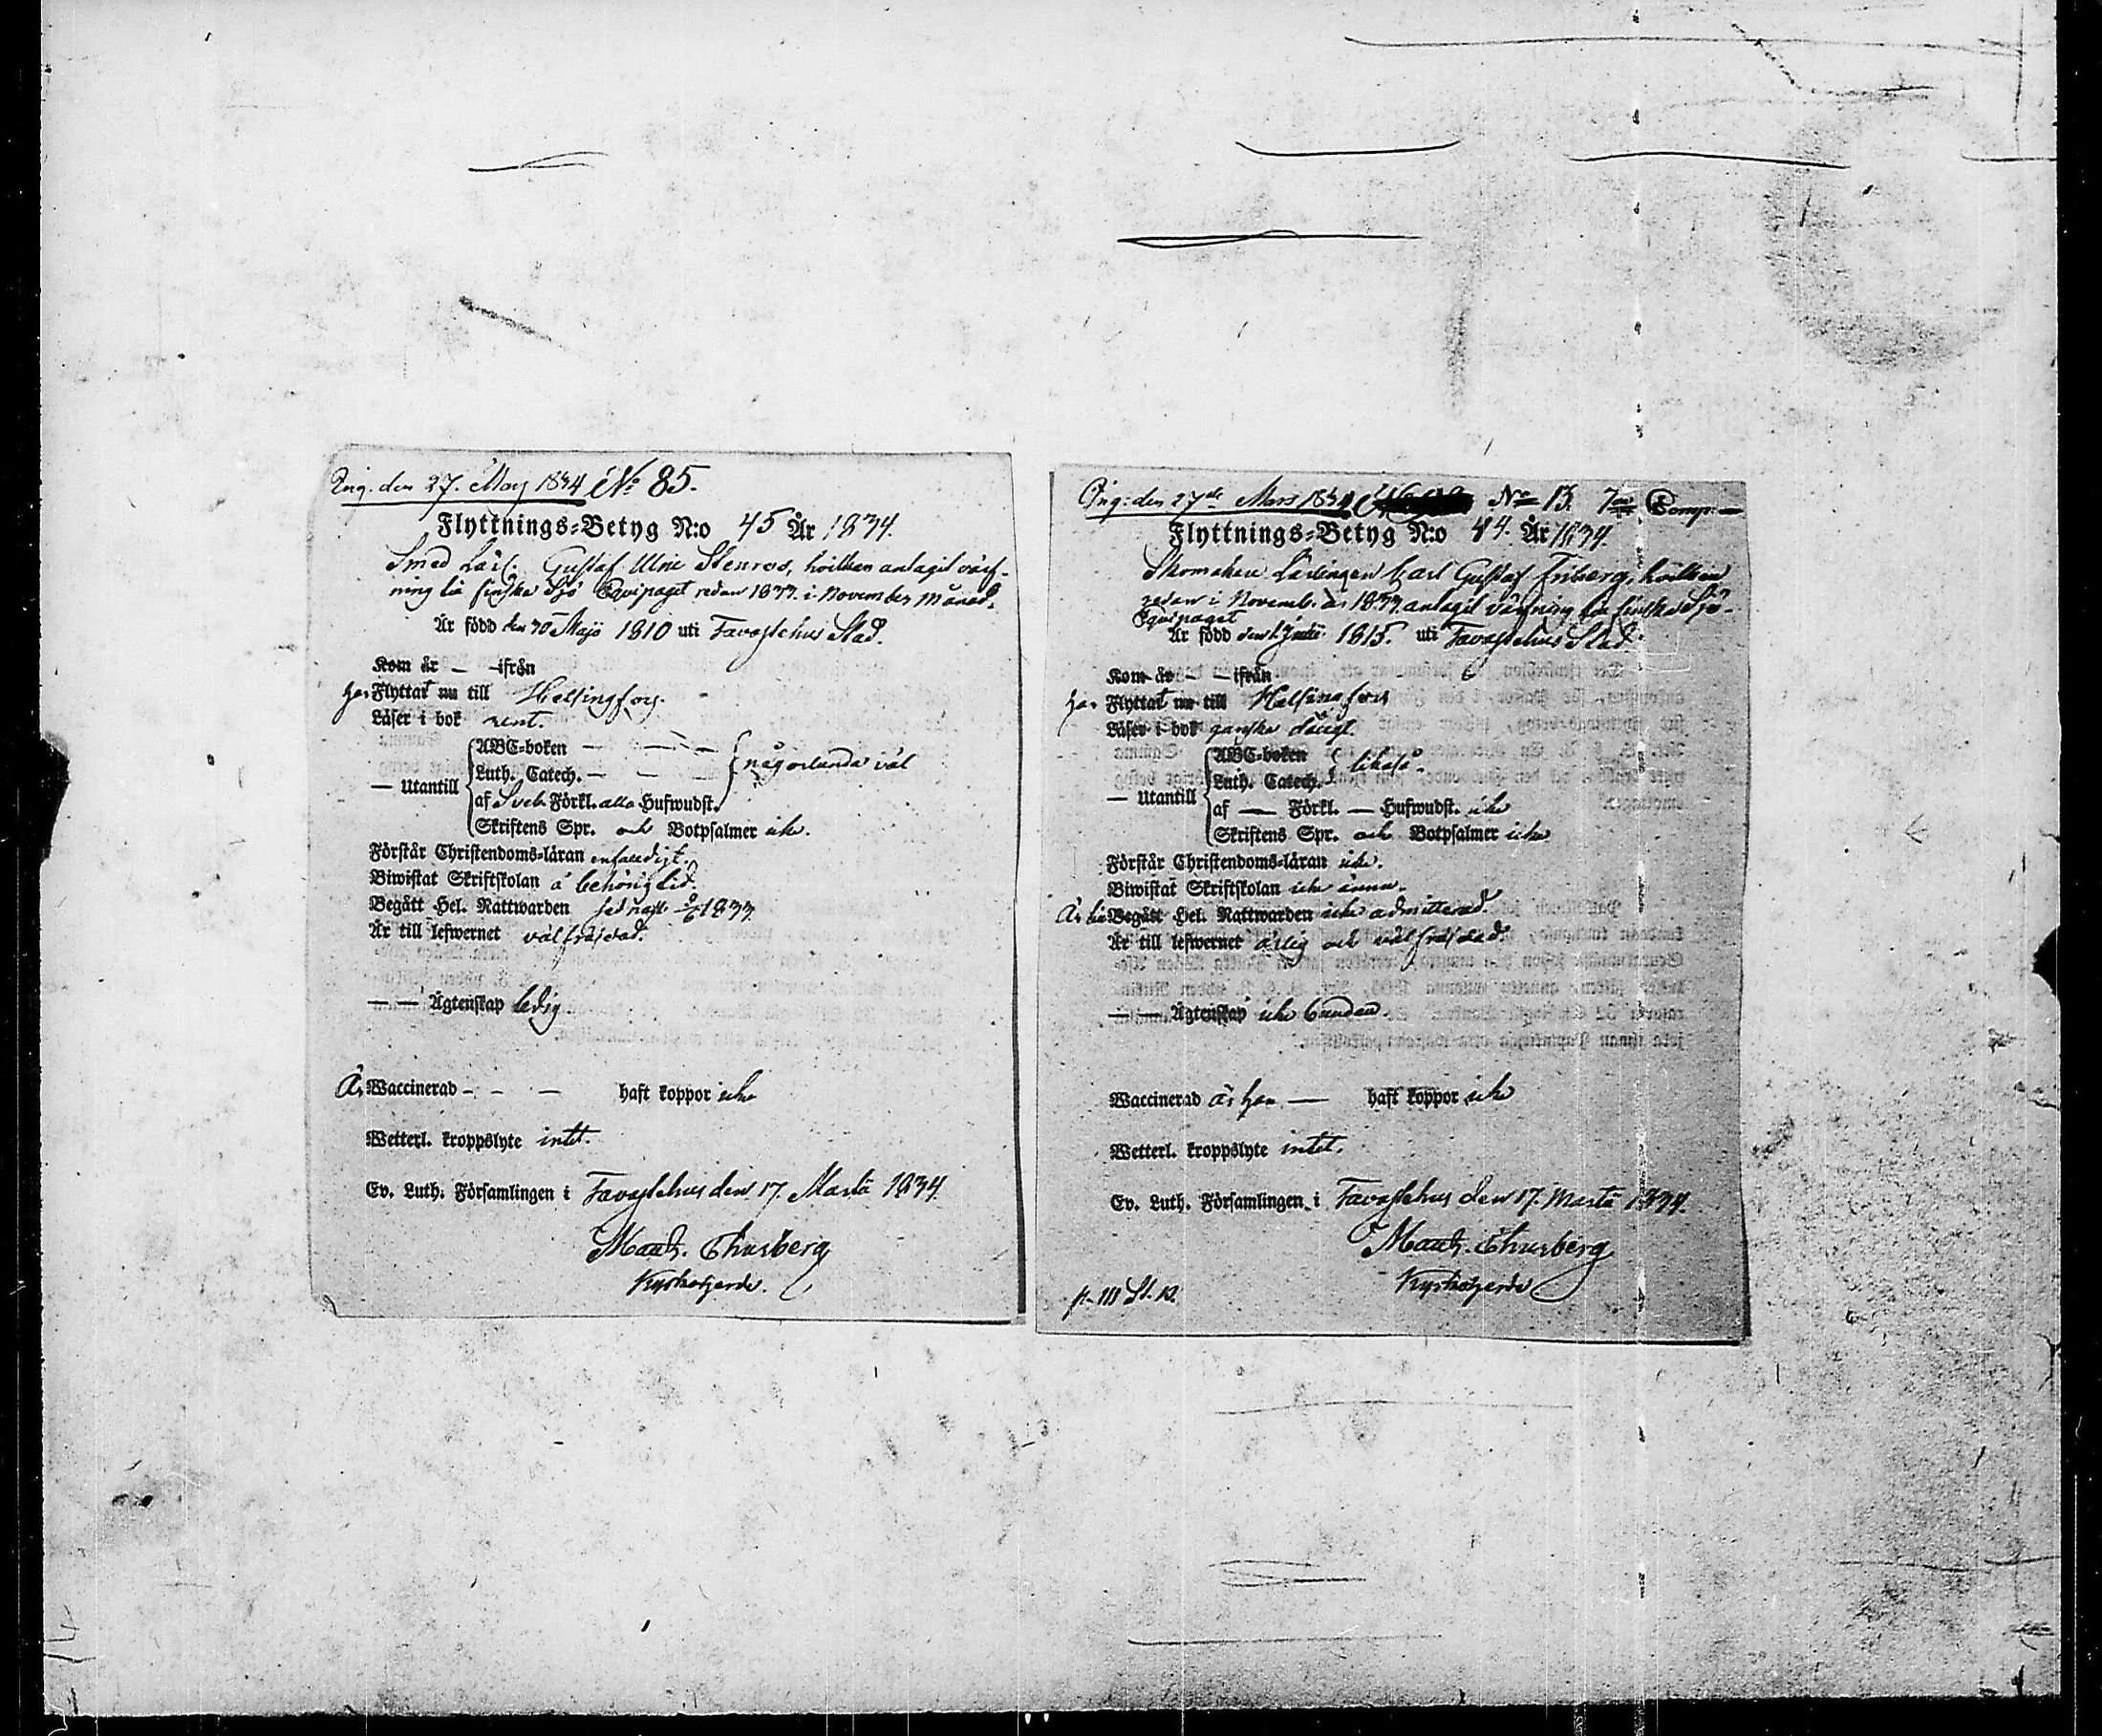 Ing. den 27. May 1834 No 85.
Flyttnings-Betyg N:o 45 År 1834.
Smed Lärl. Gustaf Ulric Stenros, hvilken antagit värf-
ning til finska Sjö Equipaget redan 1833. i November Månad.
Är född den 30 Maji 1810 uti Tavastehus Stad.
Kom år — —ifrån
har Flyttat nu till Helsingfors.
Läser i bok rent.
— Utantill
ABC-boken — — —
Luth. Catech. — — —
någorlunda väl
af Sveb. Förkl. alla Hufwudst.
Skriftens Spr. och Botpsalmer icke.
Förstår Christendoms-läran enfaldigt.
Biwistat Skriftskolan å behörig tid.
Begått Hel. Nattwarden sednast 9/6 1833
Är till lefwernet välfräjdad.
— — Ägtenskap ledig.
Är Waccinerad - - — haft koppor icke
Wetterl. kroppslyte intet.
Ev. Luth. Församlingen i Tavastehus den 17. Martii 1834.
Maur. Thusberg
Kyrkoherde.
Ing: den 27de Mars 1834 No 13. 7de Comp: —
Flyttnings-Betyg N:o 44. År 1834.
Skomakare Lärlingen Carl Gustaf Friberg, hvilken
redan i Novemb. år 1833. antagit värfning til finska Sjö-
Equipaget
Är född den 1 Junii 1815. uti Tavastehus Stad.
Kom år — — ifrån
har Flyttat nu till Helsingfors
Läser i bok ganska däligt.
— Utantill
ABC-boken
Luth. Catech.
likaså.
af — Förkl. — Hufwudst. icke
Skriftens Spr. och Botpsalmer icke
Förstår Christendoms-läran icke.
Biwistat Skriftskolan icke ännu.
Är til Begått Hel. Nattwarden icke admitterad.
Är till lefwernet ärlig och välfräjdad.
— — Ägtenskap icke bunden.
Waccinerad är han — haft koppor icke
Wetterl. kroppslyte intet.
Ev. Luth. Församlingen i Tavastehus den 17. Martii 1834.
Maur. Thusberg
Kyrkoherde
p. 111 St. K.